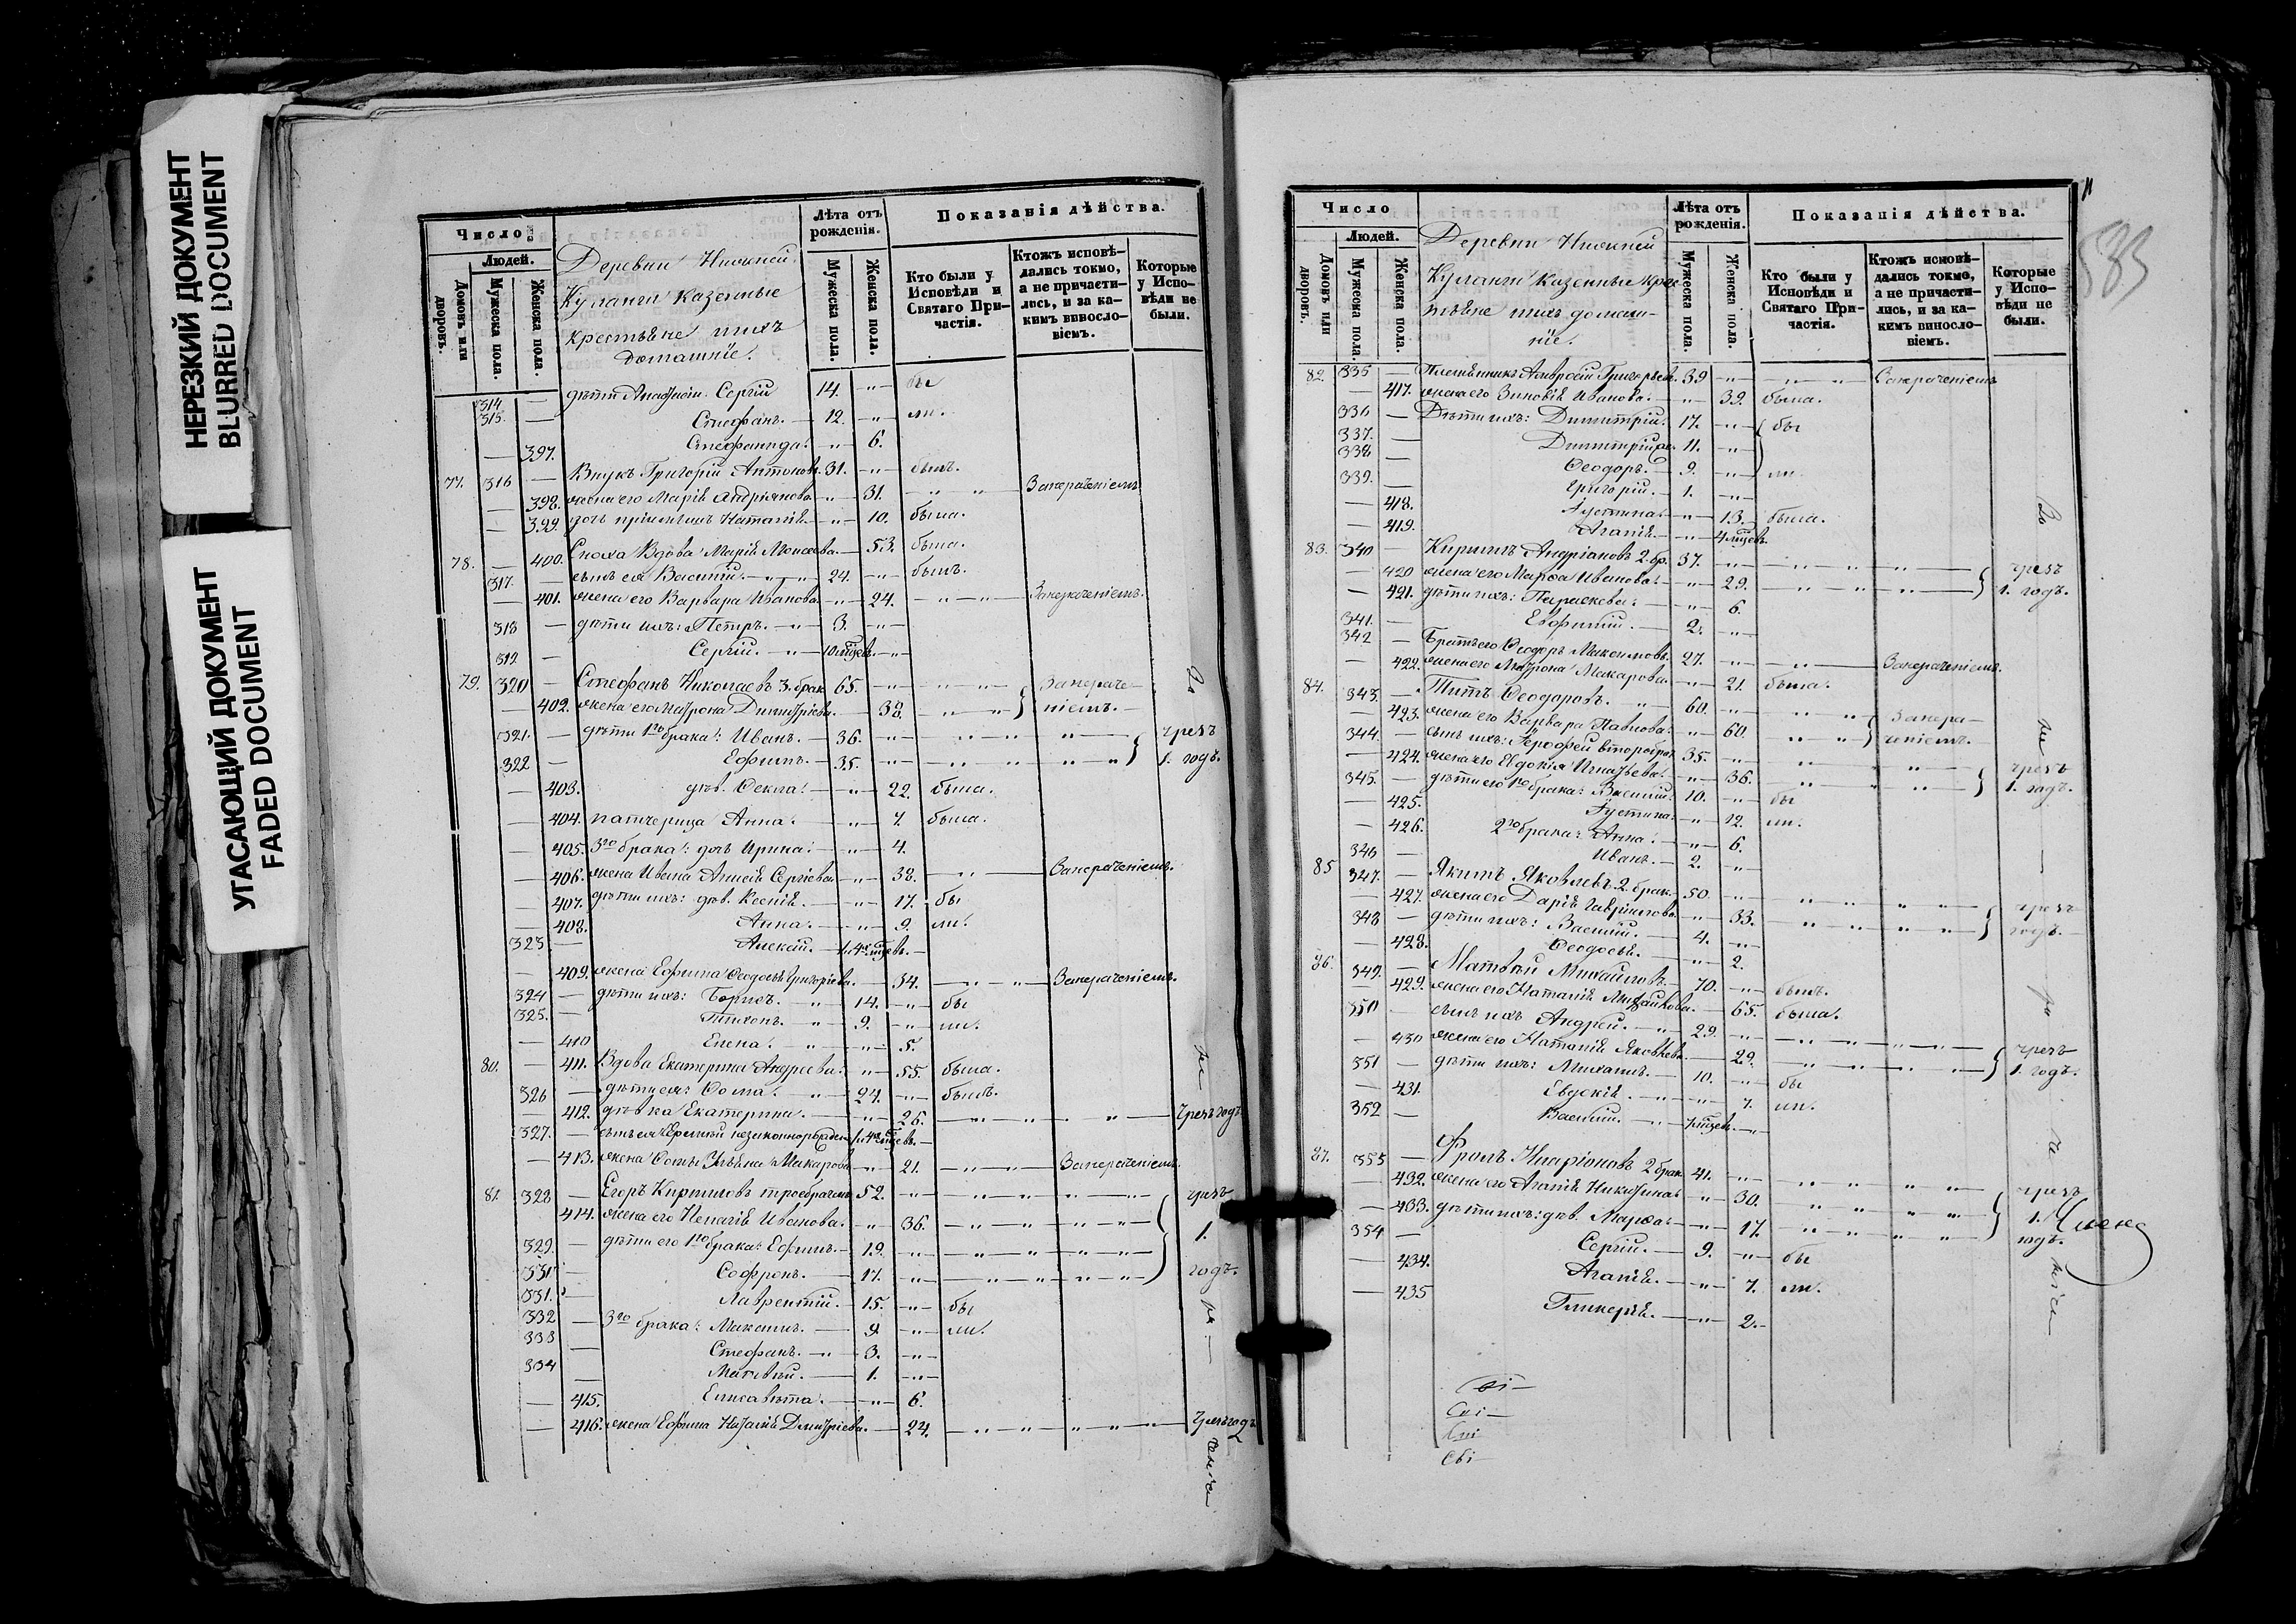 НЕРЕЗКИЙ ДОКУМЕНТ
BLURRED DOCUMENT
УГАСАЮЩИЙ ДОКУМЕНТ
FADED DOCUMENT
Число
Людей.
Домовъ или дворовъ.
Мужеска пола.
Женска пола.
Деревни Нижней
Куланги казенные
крестьяне и ихъ
домашніе.
Лѣта отъ рожденія.
Мужеска пола.
Женска пола.
Показанія дѣйства.
Кто были у Исповѣди и Святаго Причастія.
Ктожъ исповѣдались токмо, а не причастились, и за какимъ винословіемъ.
Которые у Исповѣди не были.
314 — дѣти Сергій 14. —"— бы
315. — Стефанъ. — 12. —"— ли.
— 397. Стефанида. —"— 6.
77. 316 — Внукъ Григорій Антоновъ. 31. —"— былъ.
— 398. жена его Марія Андріянова —"— 31. —"—"— За пераченіемъ
— 399. дочь Наталія. —"— 10. была.
78. — 400. Сноха Вдова Марія Моисеева. — 53. была.
317. — сынъ ея Василій. —"—"— 24. —"— былъ.
— 401. жена его Варвара Иванова. —"— 24. —"—"— За пераченіемъ.
318 — дѣти ихъ: Петръ. —"— 3. —"—
319 — Сергій. —"— 10 мѣсев. —"—
79. 320 — Стефанъ Николаевъ 3. брак. 65. —"— —"—"— За пераче-
— 402. жена его Матрона Димитріева. — 38. —"—"— ніемъ.
321. — дѣти 1го брака: Иванъ. — 36. —"— —"—"—"— чрезъ
322 — Ефимъ. — 35. —"— —"—"—"— 1. годъ.
— 403. дѣв. Ѳекла. —"— 22. была.
— 404. патчерица Анна. —"— 7. была.
— 405. 3го брака: дочь Ирина. —"— 4.
— 406. жена Ивана Анисія Сергіева —"— 38. —"— За пераченіемъ.
— 407. дѣти ихъ: дѣв. Ксенія. —"— 17. бы
— 408. Анна. —"— 9. ли.
323 — Алексій. —
— 409. жена Ефима Ѳеодосья Григоріева. — 34. —"—"— За пераченіемъ.
324 — дѣти ихъ: Борисъ. —"— 14. —"— бы
325. — Тихонъ. —"— 9. —"— ли.
— 410 Елена. —"— —"— 5.
80. — 411. Вдова Екатерина Андреева. —"— 55. была.
326 — дѣти ея: Ѳома. —"— 24. —"— былъ.
— 412. дѣвка Екатерина. —"— 26. —"—"—"— чрезъ годъ
327. — сынъ ея незаконнорожден.
— 413. жена Ѳомы Ульяна Макарова —"— 21. —"—"— За пераченіемъ.
81. 328 — Егоръ Кириловъ троебрачен. 52. —"— —"—"—"—"— чрезъ
414. жена его Пелагія Иванова. —"— 36. —"—"—"—"— 1.
329. — дѣти его 1го брака: Ефимъ. — 19. —"— —"—"—"—"— годъ.
331 — Софронъ. — 17. —"— —"—"—"—"—
331. — Лаврентій. — 15. —"— бы
332 — 3го брака: Максимъ. — 9 —"— ли.
333 — Стефанъ. —"— 3. —"—
334 — Матвѣй. — 1. —"—
— 415. Елисавѣта. —"— 6.
— 416. жена Ефима Наталія Димитріева. — 24. —"—"—"—"— Чрезъ годъ
583
Число
Людей.
Домовъ или дворовъ.
Мужеска пола.
Женска пола.
Деревни Нижней
Куланги казенные крес-
тьяне и ихъ домаш-
ніе.
Лѣта отъ рожденія.
Мужеска пола.
Женска пола.
Показанія дѣйства.
Кто были у Исповѣди и Святаго Причастія.
Ктожъ исповѣдались токмо, а не причастились, и за какимъ винословіемъ.
Которые у Исповѣди не были.
82. 335 — Племянникъ Амвросій Григорьев. 39 —"— —"—"— За пераченіемъ
— 417. жена его Зиновія Иванова. —"— 39. была.
336 — Дѣти ихъ: Димитрій. 17. —"— бы
337. — Димитрій 11. —"—
338 — Ѳеодоръ. — 9. —"— ли.
339. — Григорій. — 1. —"—
— 418. Іустина. —"— 13. была.
— 419. Агапія. —"— 4 мѣсев.
83. 340 — Кирилъ Андріановъ 2. бр. 37. —"— —"—"—"— чрезъ
— 420 жена его Марѳа Иванова. —"— 29. —"—"—"— 1. годъ.
— 421. дѣти ихъ: Параскева. —"— 6.
341. — Евфимій. — 2. —"—
342 — Братъ его Ѳеодоръ Максимовъ. 27. —"— —"— За пераченіемъ.
— 422. жена его Матрона Макарова. —"— 21. была.
84. 343. — Титъ Ѳеодоровъ. —"— 60. —"— —"—"— За пера-
— 423. жена его Варвара Павлова. —"— 60. —"—"— ченіемъ.
344 — сынъ ихъ: Іероѳей второбрач. 35. —"— —"—"— чрезъ
— 424. жена его Евдокія Игнатьева. —"— 36. —"—"—"— 1. годъ.
345. — дѣти его 1го брака: Василій. 10. —"— бы
— 425. Іустина. —"— 12. ли.
— 426. 2го брака: Анна. —"— 6.
346 — Иванъ. — 2. —"—
85 347. — Якимъ Яковлевъ 2. брак. 50. —"— —"—"—"—"— чрезъ
— 427. жена его Дарія Гавриилова. —"— 33. —"—"—"—"— годъ.
348 — дѣти ихъ: Василій. — 4. —"—
— 428. Ѳеодосія. — —"— 2.
86. 349. — Матвѣй Михайловъ. — 70. —"— былъ.
— 429. жена его Наталія Михайлова. — 65. была.
350 — сынъ ихъ Андрей. —"— 29. —"— —"—"—"—"— чрезъ
— 430 жена его Наталія Яковлева. — 29. —"—"—"—"— 1. годъ.
351 — дѣти ихъ: Михаилъ. — 10. —"— бы
— 431. Евдокія. —"— —"— 7. ли.
352 — Василій. —"— —"—
87. 353 — Фролъ Иларіоновъ 2 брак. 41. —"— —"—"—"—"— чрезъ
— 432. жена его Агапія Никитина. —"— 30. —"—"—"—"— 1.
— 433. дѣти ихъ: дѣв. Марѳа. —"— 17. —"—"—"—"— годъ.
354 — Сергій. — 9. —"— бы
— 434. Агапія. —"— 7. ли.
— 435 Гликерія. —"— 2.